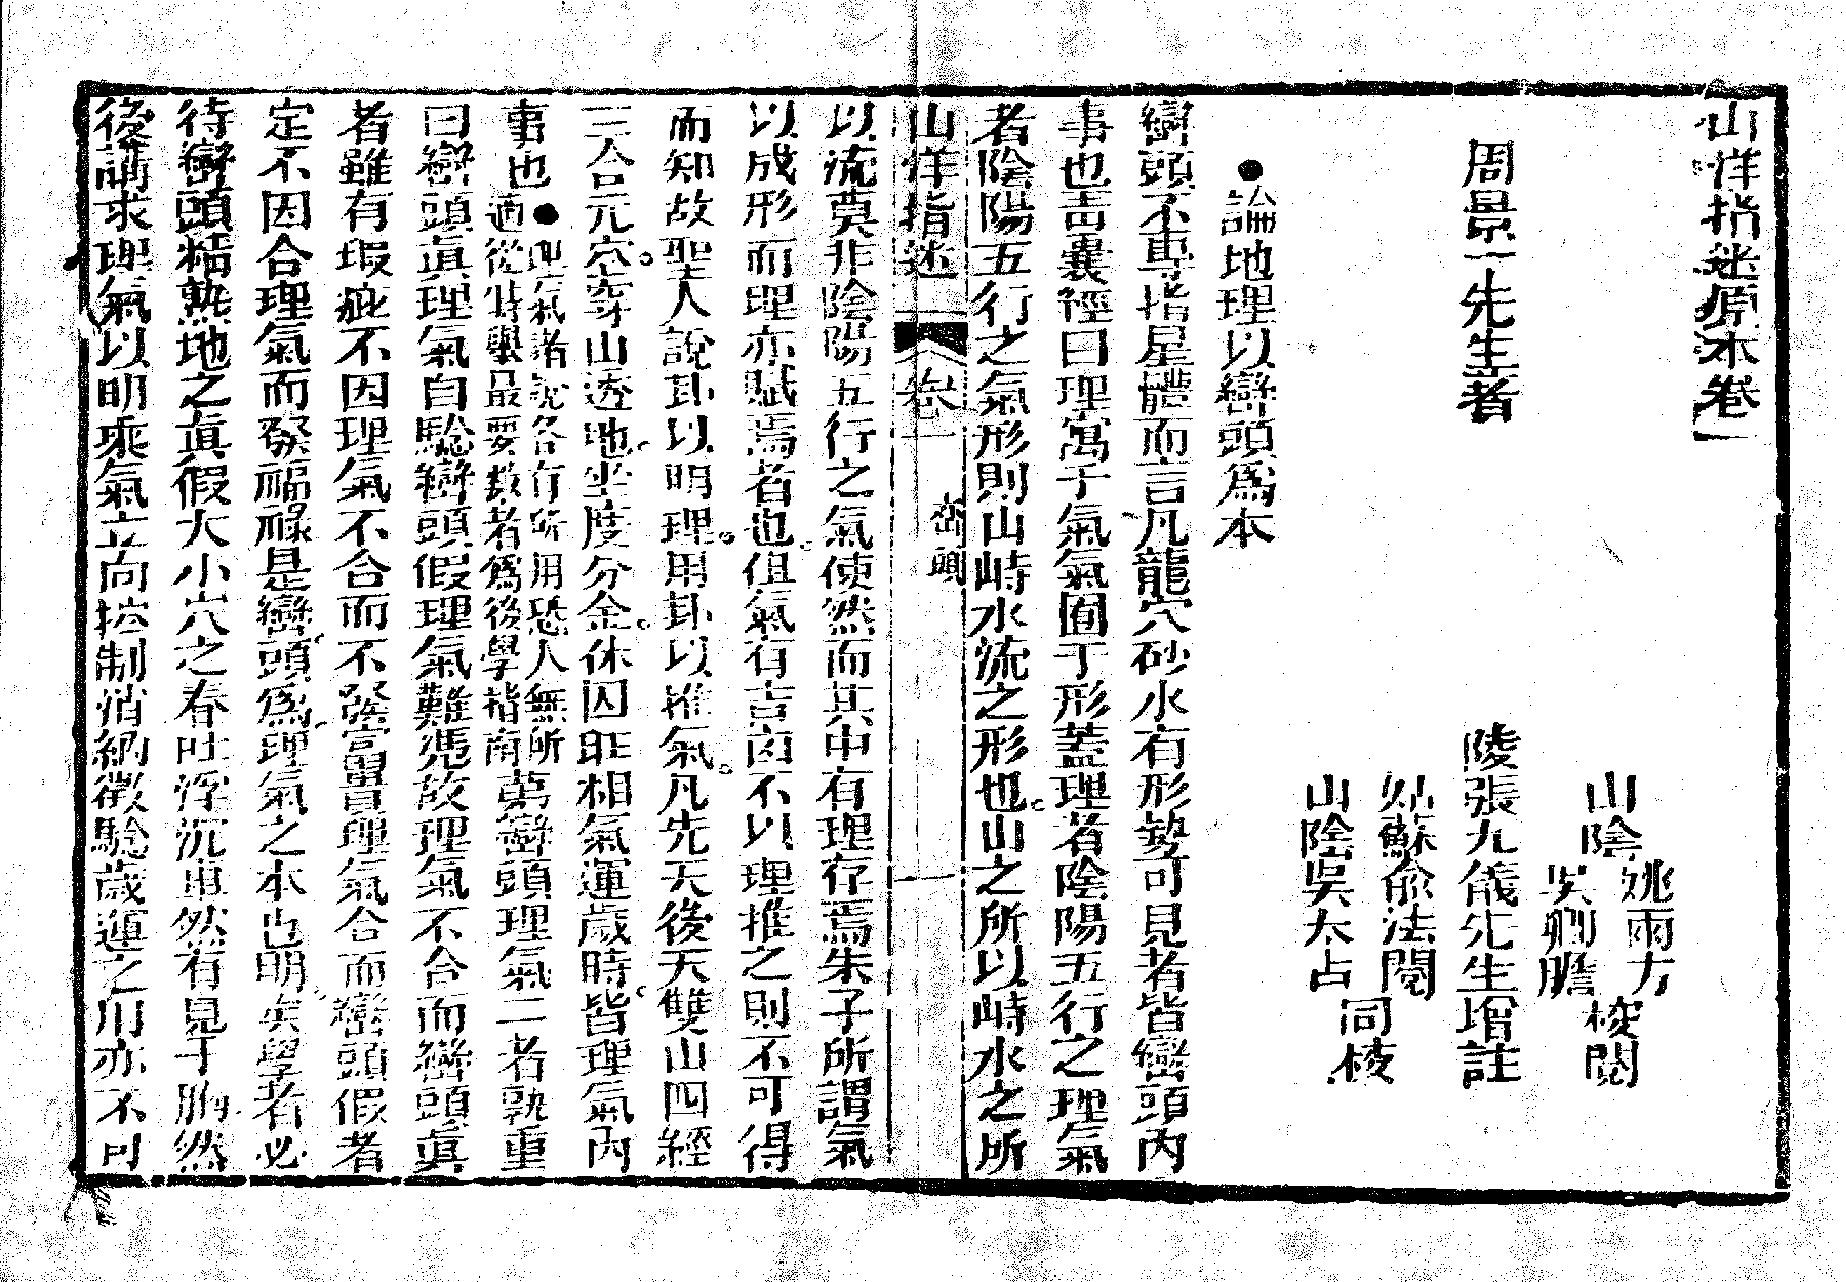 山洋指迷原本卷一
周景一先生著
山陰
姚雨方
吳卿瞻
校閱
陵張九儀先生增註
姑蘇俞法閱
山陰吳太占
同校
●論地理以巒頭為本
巒頭不專指星體而言凡龍穴砂水有形勢可見者皆巒頭內
事也青囊經曰理寓于氣氣囿于形蓋理者陰陽五行之理氣
者陰陽五行之氣形則山峙水流之形也山之所以峙水之所
山洋指迷 卷一 巒頭 一
以流莫非陰陽五行之氣使然而其中有理存焉朱子所謂氣
以成形而理亦賦焉者也但氣有吉凶不以理推之則不可得
而知故聖人說卦以明理用卦以推氣凡先天後天雙山四經
三合元穴穿山透地坐度分金休囚旺相氣運歲時皆理氣內
事也●理氣者說各有所用恐人無所
適從特舉最要數者為後學指南
第巒頭理氣二者孰重
曰巒頭真理氣自驗巒頭假理氣難憑故理氣不合而巒頭真
者雖有瑕疵不因理氣不合而不發富貴理氣合而巒頭假者
定不因合理氣而發福祿是巒頭為理氣之本也明矣學者必
待巒頭精熟地之真假大小穴之吞吐浮沉卓然有見于胸然
後講求理氣以明乘氣立向控制消納徵驗歲運之用亦不可